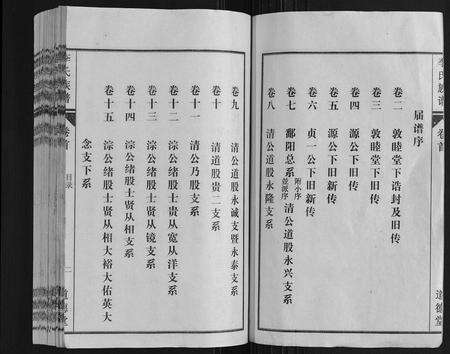 李氏族谱
卷首
道德堂
届谱序
卷二 敦睦堂下诰封及旧传
卷三 敦睦堂下旧传
卷四 源公下旧传
卷五 源公下旧新传
卷六 贞一公下旧新传
卷七 鄱阳总系 附小序 並派序 清公道股永兴支系
卷八 清公道股永隆支系
卷九 清公道股永诚支暨永泰支系
卷十 清道股贵二支系
卷十一 清公乃股支系
卷十二 淙公绪股士贵从宽从洋支系
卷十三 淙公绪股士贤从镜支系
卷十四 淙公绪股士贤从相支系
卷十五 淙公绪股士贤从相大裕大佑英大
念支下系
李氏族谱
卷首
目录
一
道德堂